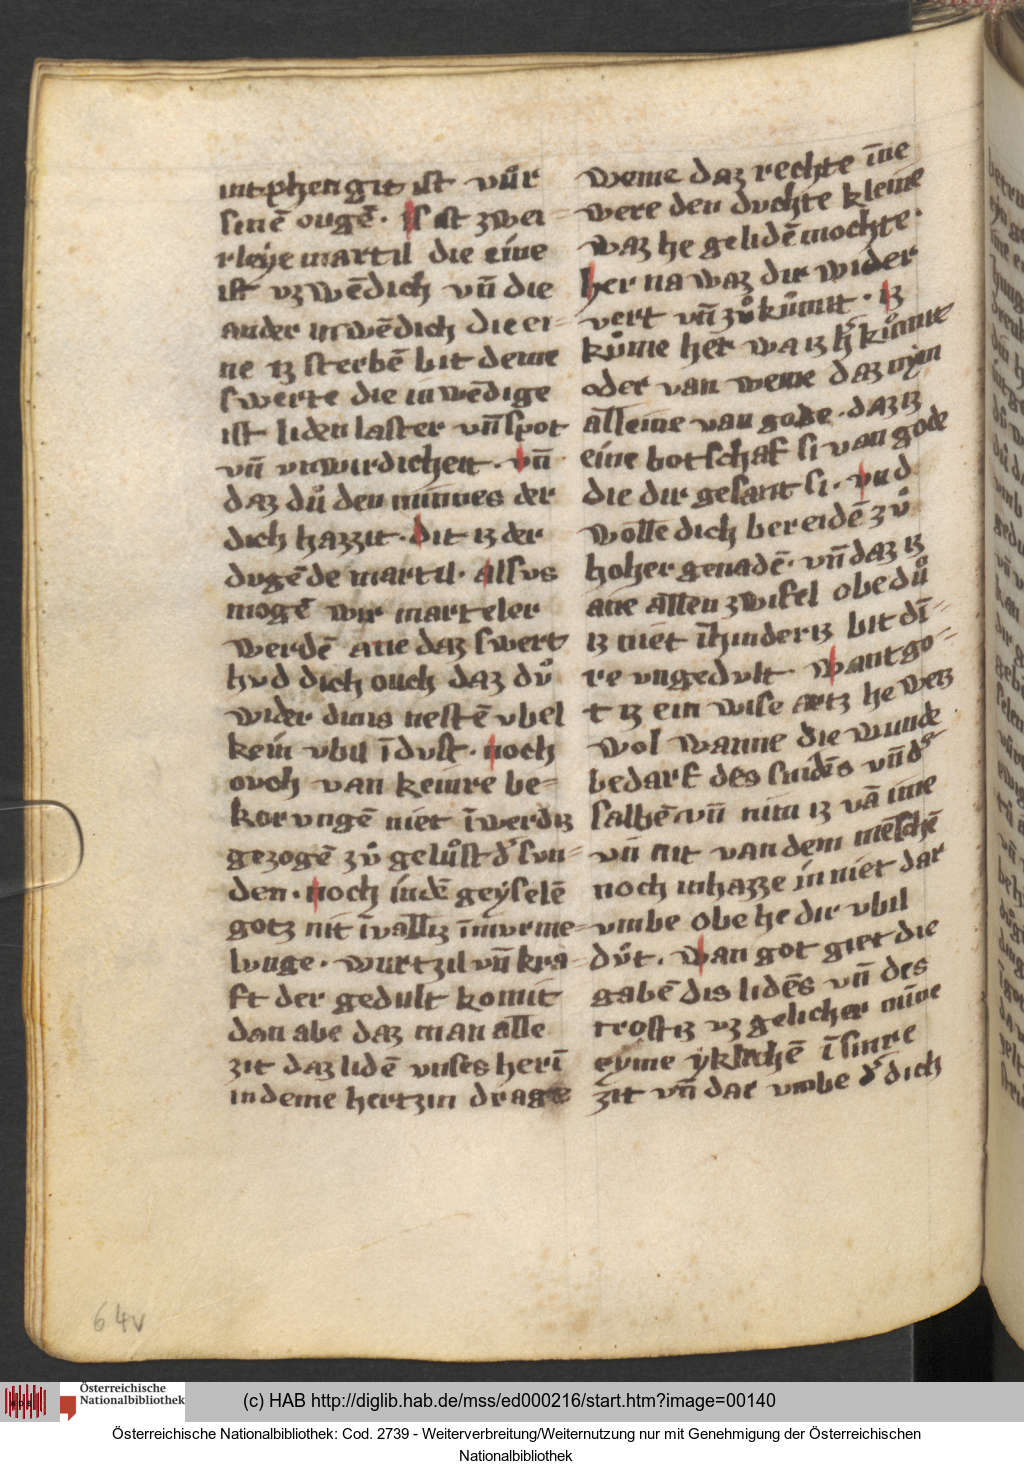 intphengit ist vuͦr
sinē ougē. iſ ist zwei
rleẏe martil die eíne
ist vzwēdich vn̄ die
ander inwēdich die ei=
ne iz sterbē bit deme
swerte die inwēdige
ist liden laster vn̄ spot
vn̄ vnwirdicheit. vn̄
daz duͦ den minnes der
dich hazzit. dit iz der
dvgēde martil. alſvs
mogē wir marteler
werdē ane daz swert
hvd dich ouch daz dvͦ
wider dinis nestē vbel
kein vbil īdvst. noch
ovch van keinre be=
korvngē niet īwerdiz
gezogē zvͦ geluͦst dˢ svn=
den. noch indē geẏselē
gotz nit īvalliz īmvrme=
lvnge. wurtzil vn̄ kra=
ft der gedult komit
dan abe daz man alle
zit daz lidē vnses herī
indeme hertzin drage
weme daz rechte īne
were den duchte kleine
waz he gelidē mochte.
her na waz dir wider
vert vn̄ zvͦ kuͦmit. iz
kuͦme her wa iz hˢ kuͦme
oder van weme daz nẏm
alleine van gode. daz iz
eine botschaf si van gode
die dir gesant si. vnd
wolle dich bereidē zvͦ
hoher genadē. vn̄ daz iz
ane allen zwifel obe duͦ
iz niet īhinderiz bit dī=
re vngedvlt. want go=
t iz ein wise artz he weiz
wol wanne die wunde
bedarf des snidēs vn̄ dˢ
salbē vn̄ nim iz vā ime
vn̄ nit van dem mēschē
noch inhazze in niet dar
vmbe obe he dir vbil
dvͦt. wan got giet die
gabē dis lidēs vn̄ des
trost iz vz gelicher mīne
eyme ẏklichē ī sinre
zit vn̄ dar vmbe dˢ dich
64v
Österreichische
Nationalbibliothek
(c) HAB http://diglib.hab.de/mss/ed000216/start.htm?image=00140
Österreichische Nationalbibliothek: Cod. 2739 - Weiterverbreitung/Weiternutzung nur mit Genehmigung der Österreichischen
Nationalbibliothek